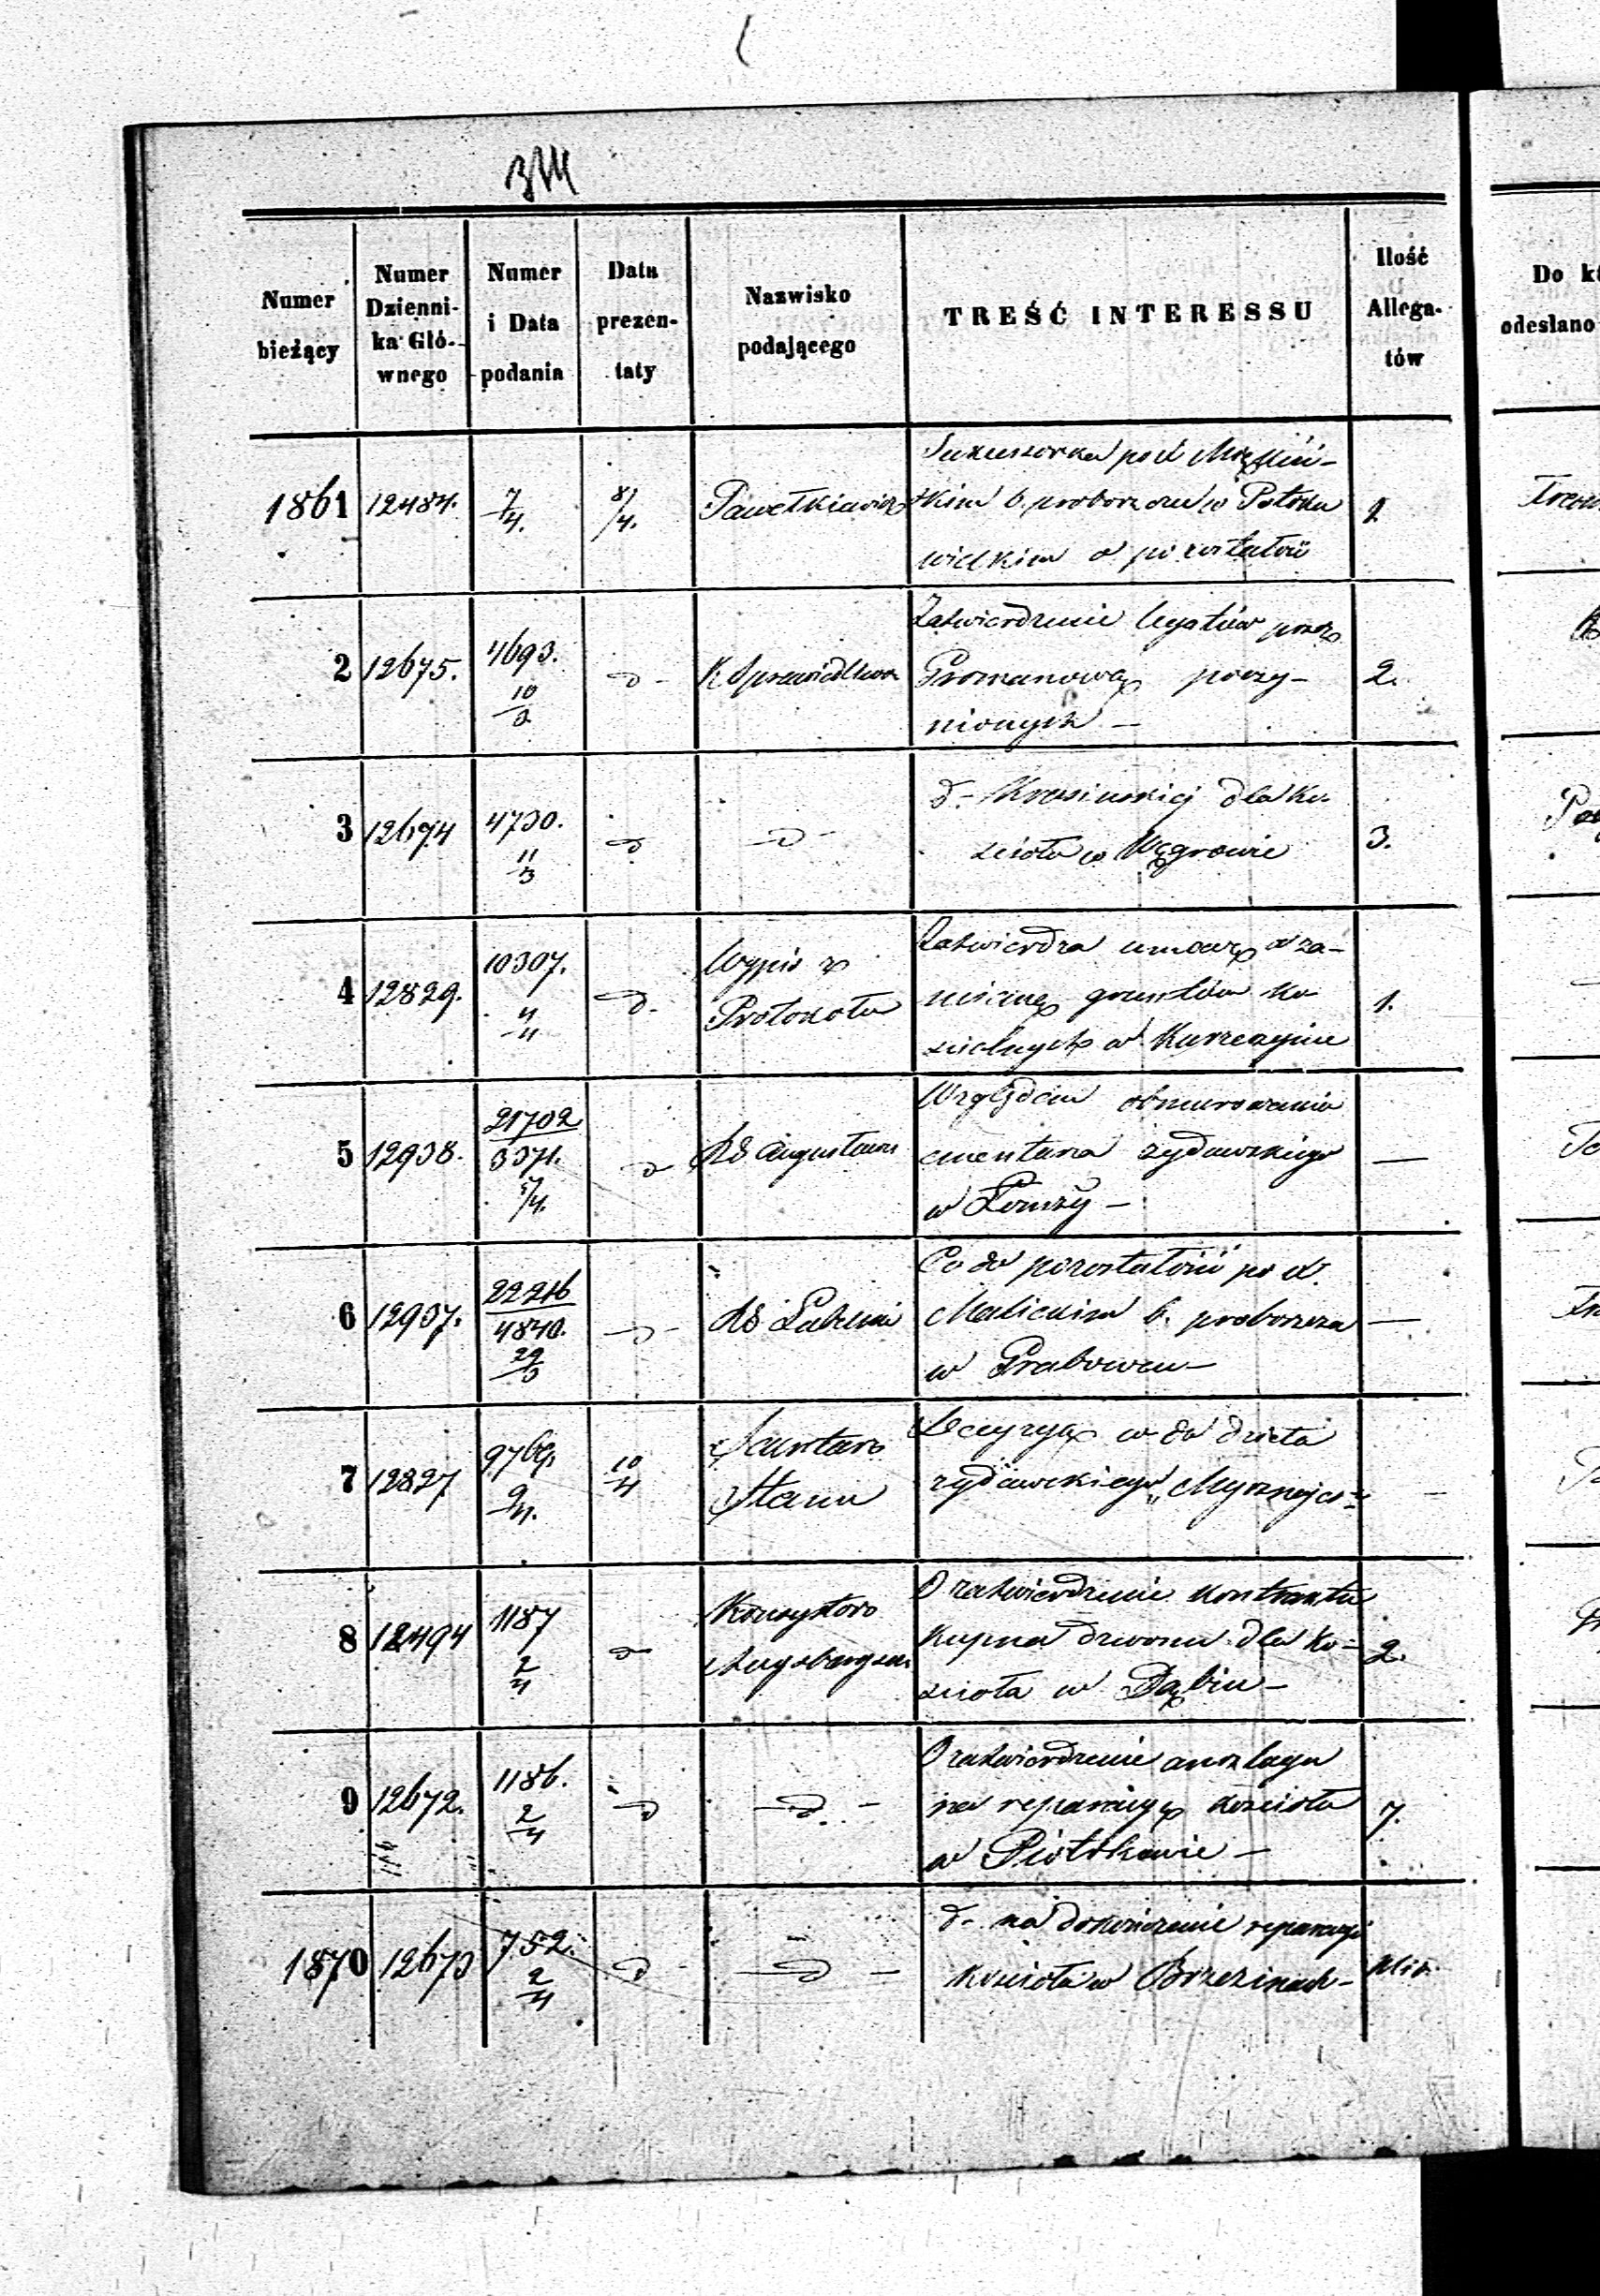 Numer bieżący | Numer Dzienni- ka Głó- wnego | Numer i Data podania | Data prezen- taty | Nazwisko podającego | TREŚĆ INTERESSU | Ilość Allega- tów | odesłano
1861 | 12484. | 7/4. | 8/4. | Pawełkiewicz
po X
skim b. proboszczu w Potoku
wielkim o pozostałość
2 | 12675. | 4693. 10/3 | d - | K Sprawiedliwa | 2.
Zatwierdzenie legatów przez
poczy-
nionych —
3 | 12674 | 4730. 11/3 | d | d - | 3.
d. - Krasińskiej dla ko-
ścioła w Węgrowie
4 | 12829. | 10307. 4/4 | d. | Wypis z Protokołu | 1.
Zatwierdza umowę o za-
mianę gruntów ko-
ścielnych w
5 | 12938. | 21702 / 3371. 5/4. | d | RG Augustows | —
Względem obmurowania
cmentarza żydowskiego
w Łomży —
6 | 12937. | 22216 / 4840. 29/3 | d - | RG Lubelski | —
Co do pozostałości po X.
Malickim b. proboszczu
w Grabowcu —
7 | 12827 | 9769. 9/4. | 10/4 | Stanu | -
Decyzya co do dzieła
żydowskiego
8 | 12494 | 1187 2/4 | d | Konsystorz Augsburgski | 2.
O zatwierdzenie kontraktu
kupna dzwonu dla Ko-
ścioła w Dąbiu —
9 | 12672. | 1186. 2/4 | d | d. - | 7.
O zatwierdzenie anszlagu
na reparacyę kościoła
w Piotrkowie —
1870 | 12673 | 752. 2/4 | d - | d —
d. - na dokończenie reparacyi
kościoła w Brzezinach -